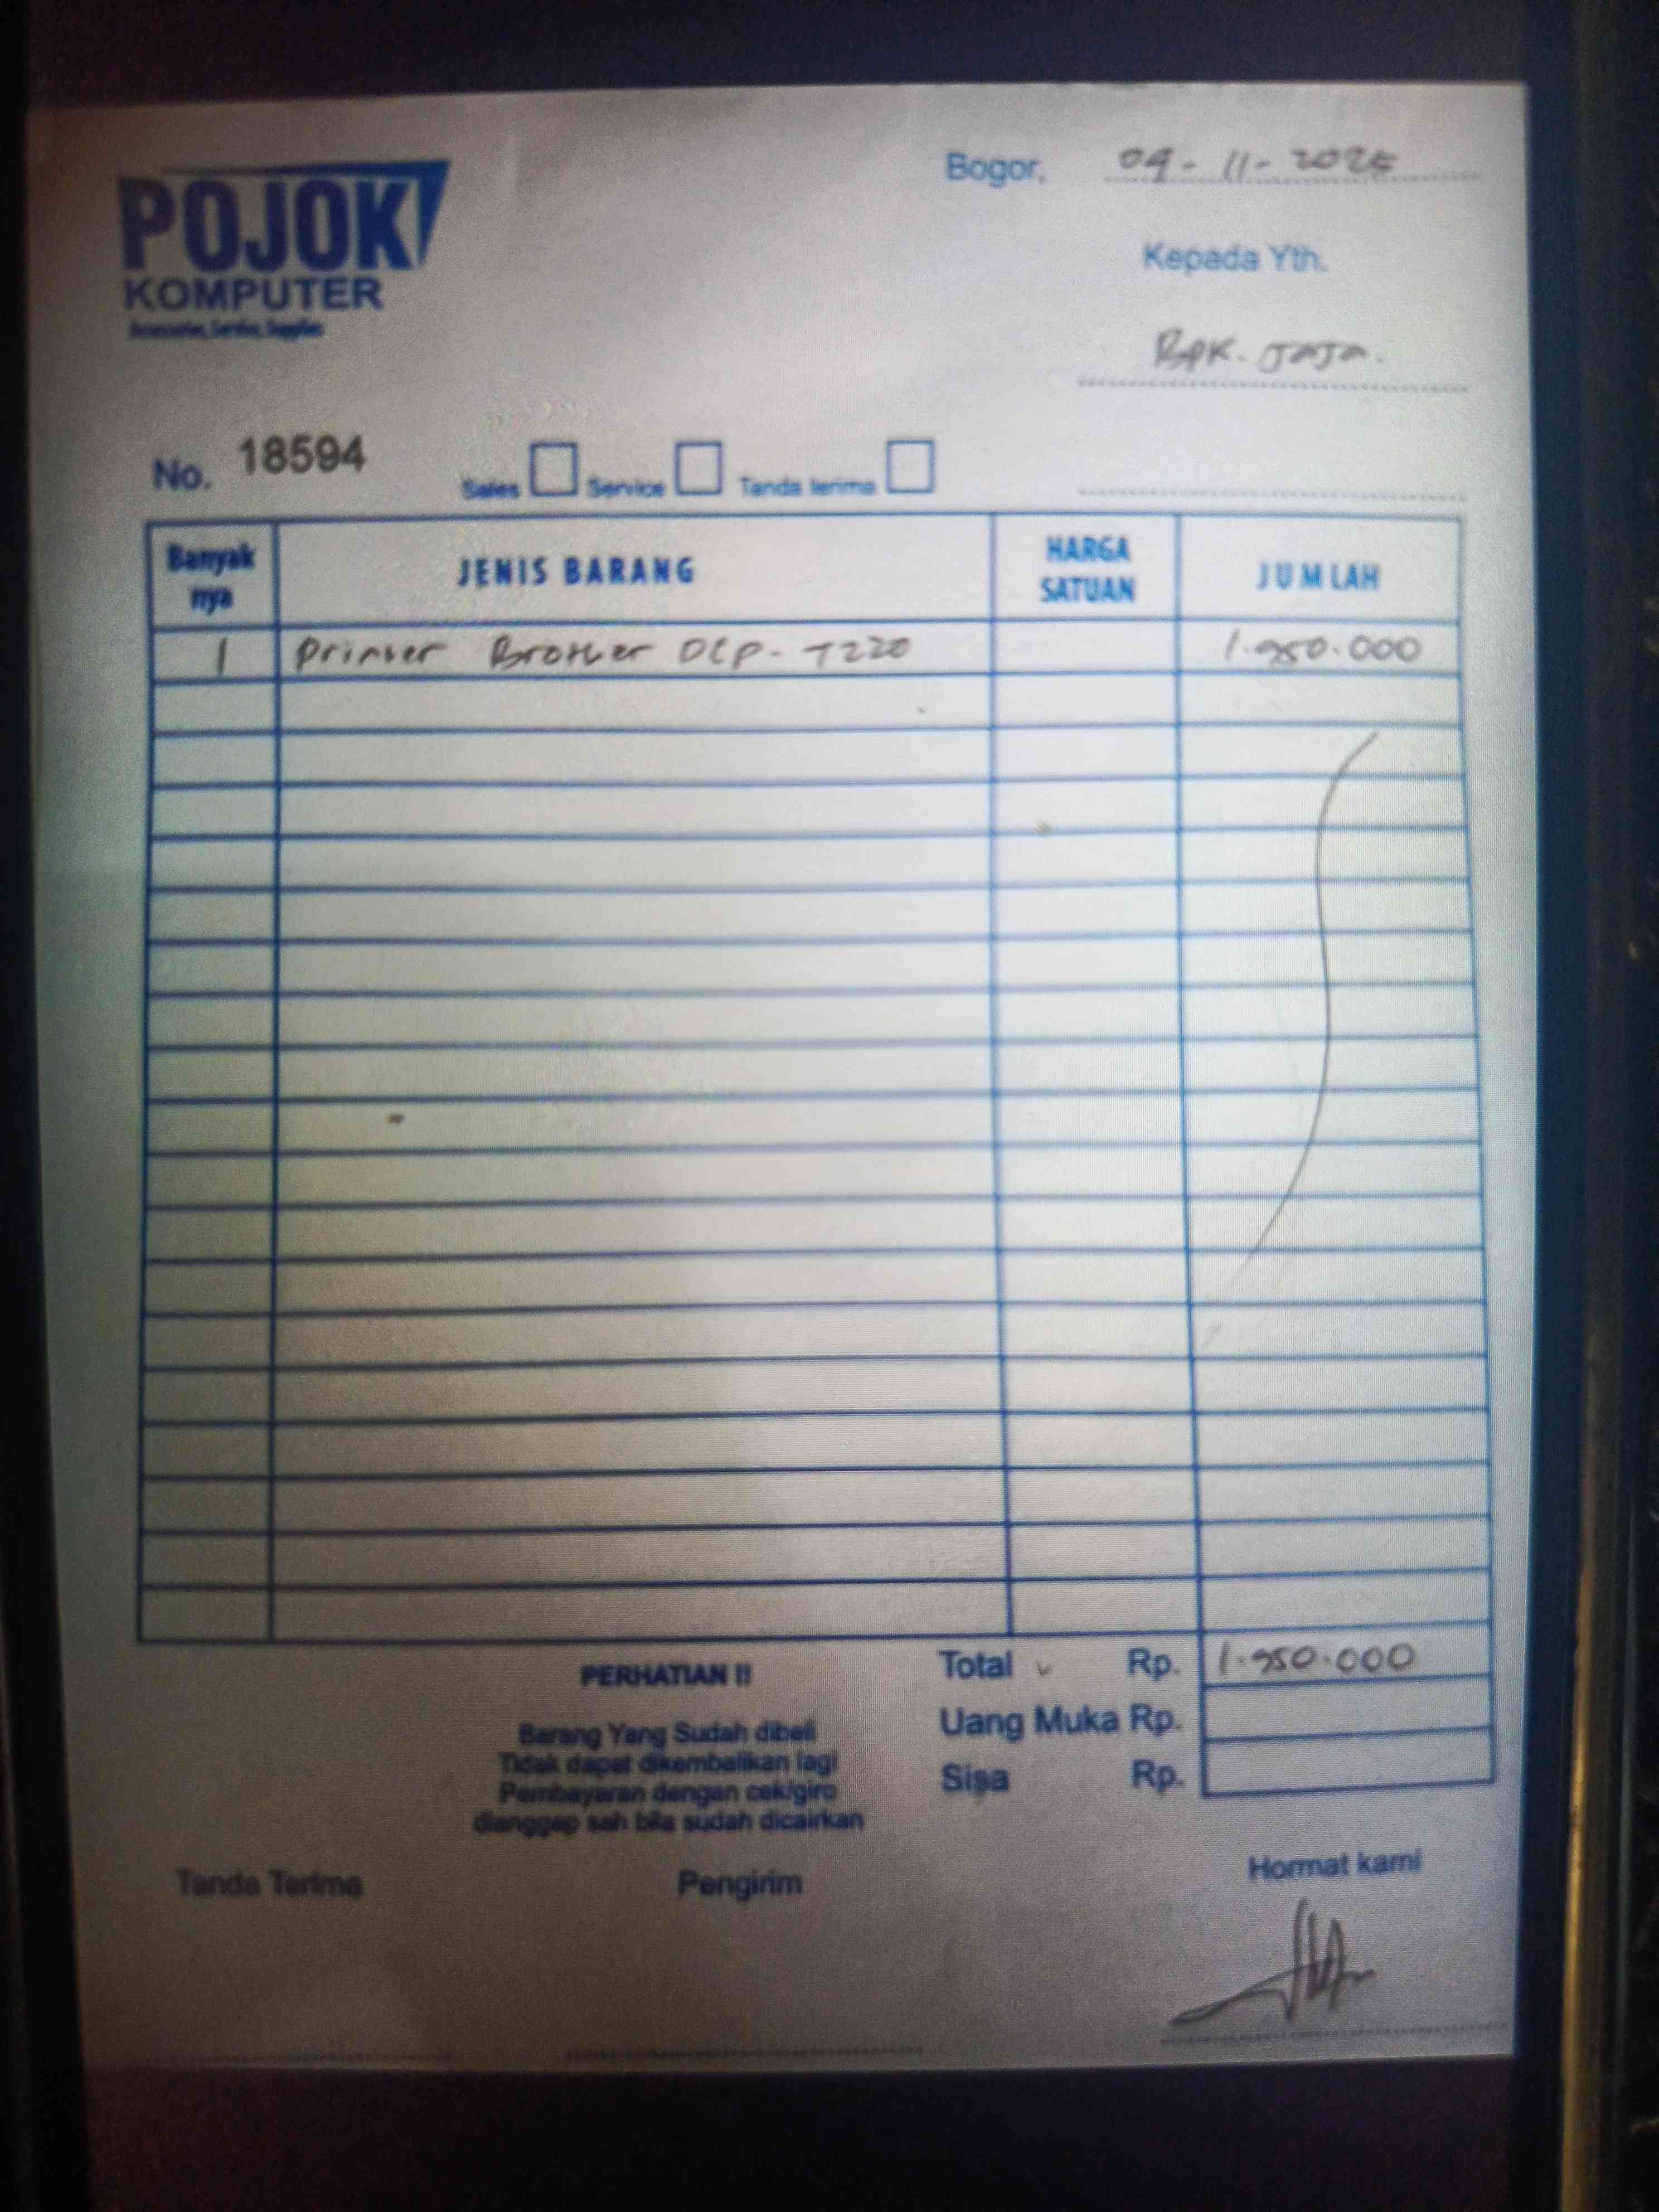 POJOK
KOMPUTER
Accessories, Service, Supplies
Bogor, 09-11-2025
Kepada Yth.
Bpk. Jaja.
No. 18594
Sales Service Tanda terima
Banyak nya JENIS BARANG HARGA SATUAN JUMLAH
1 Printer Brother DCP-T220 1.950.000
Total Rp. 1.950.000
Uang Muka Rp.
Sisa Rp.
PERHATIAN !!
Barang Yang Sudah dibeli
Tidak dapat dikembalikan lagi
Pembayaran dengan cek/giro
dianggap sah bila sudah dicairkan
Tanda Terima Pengirim Hormat kami